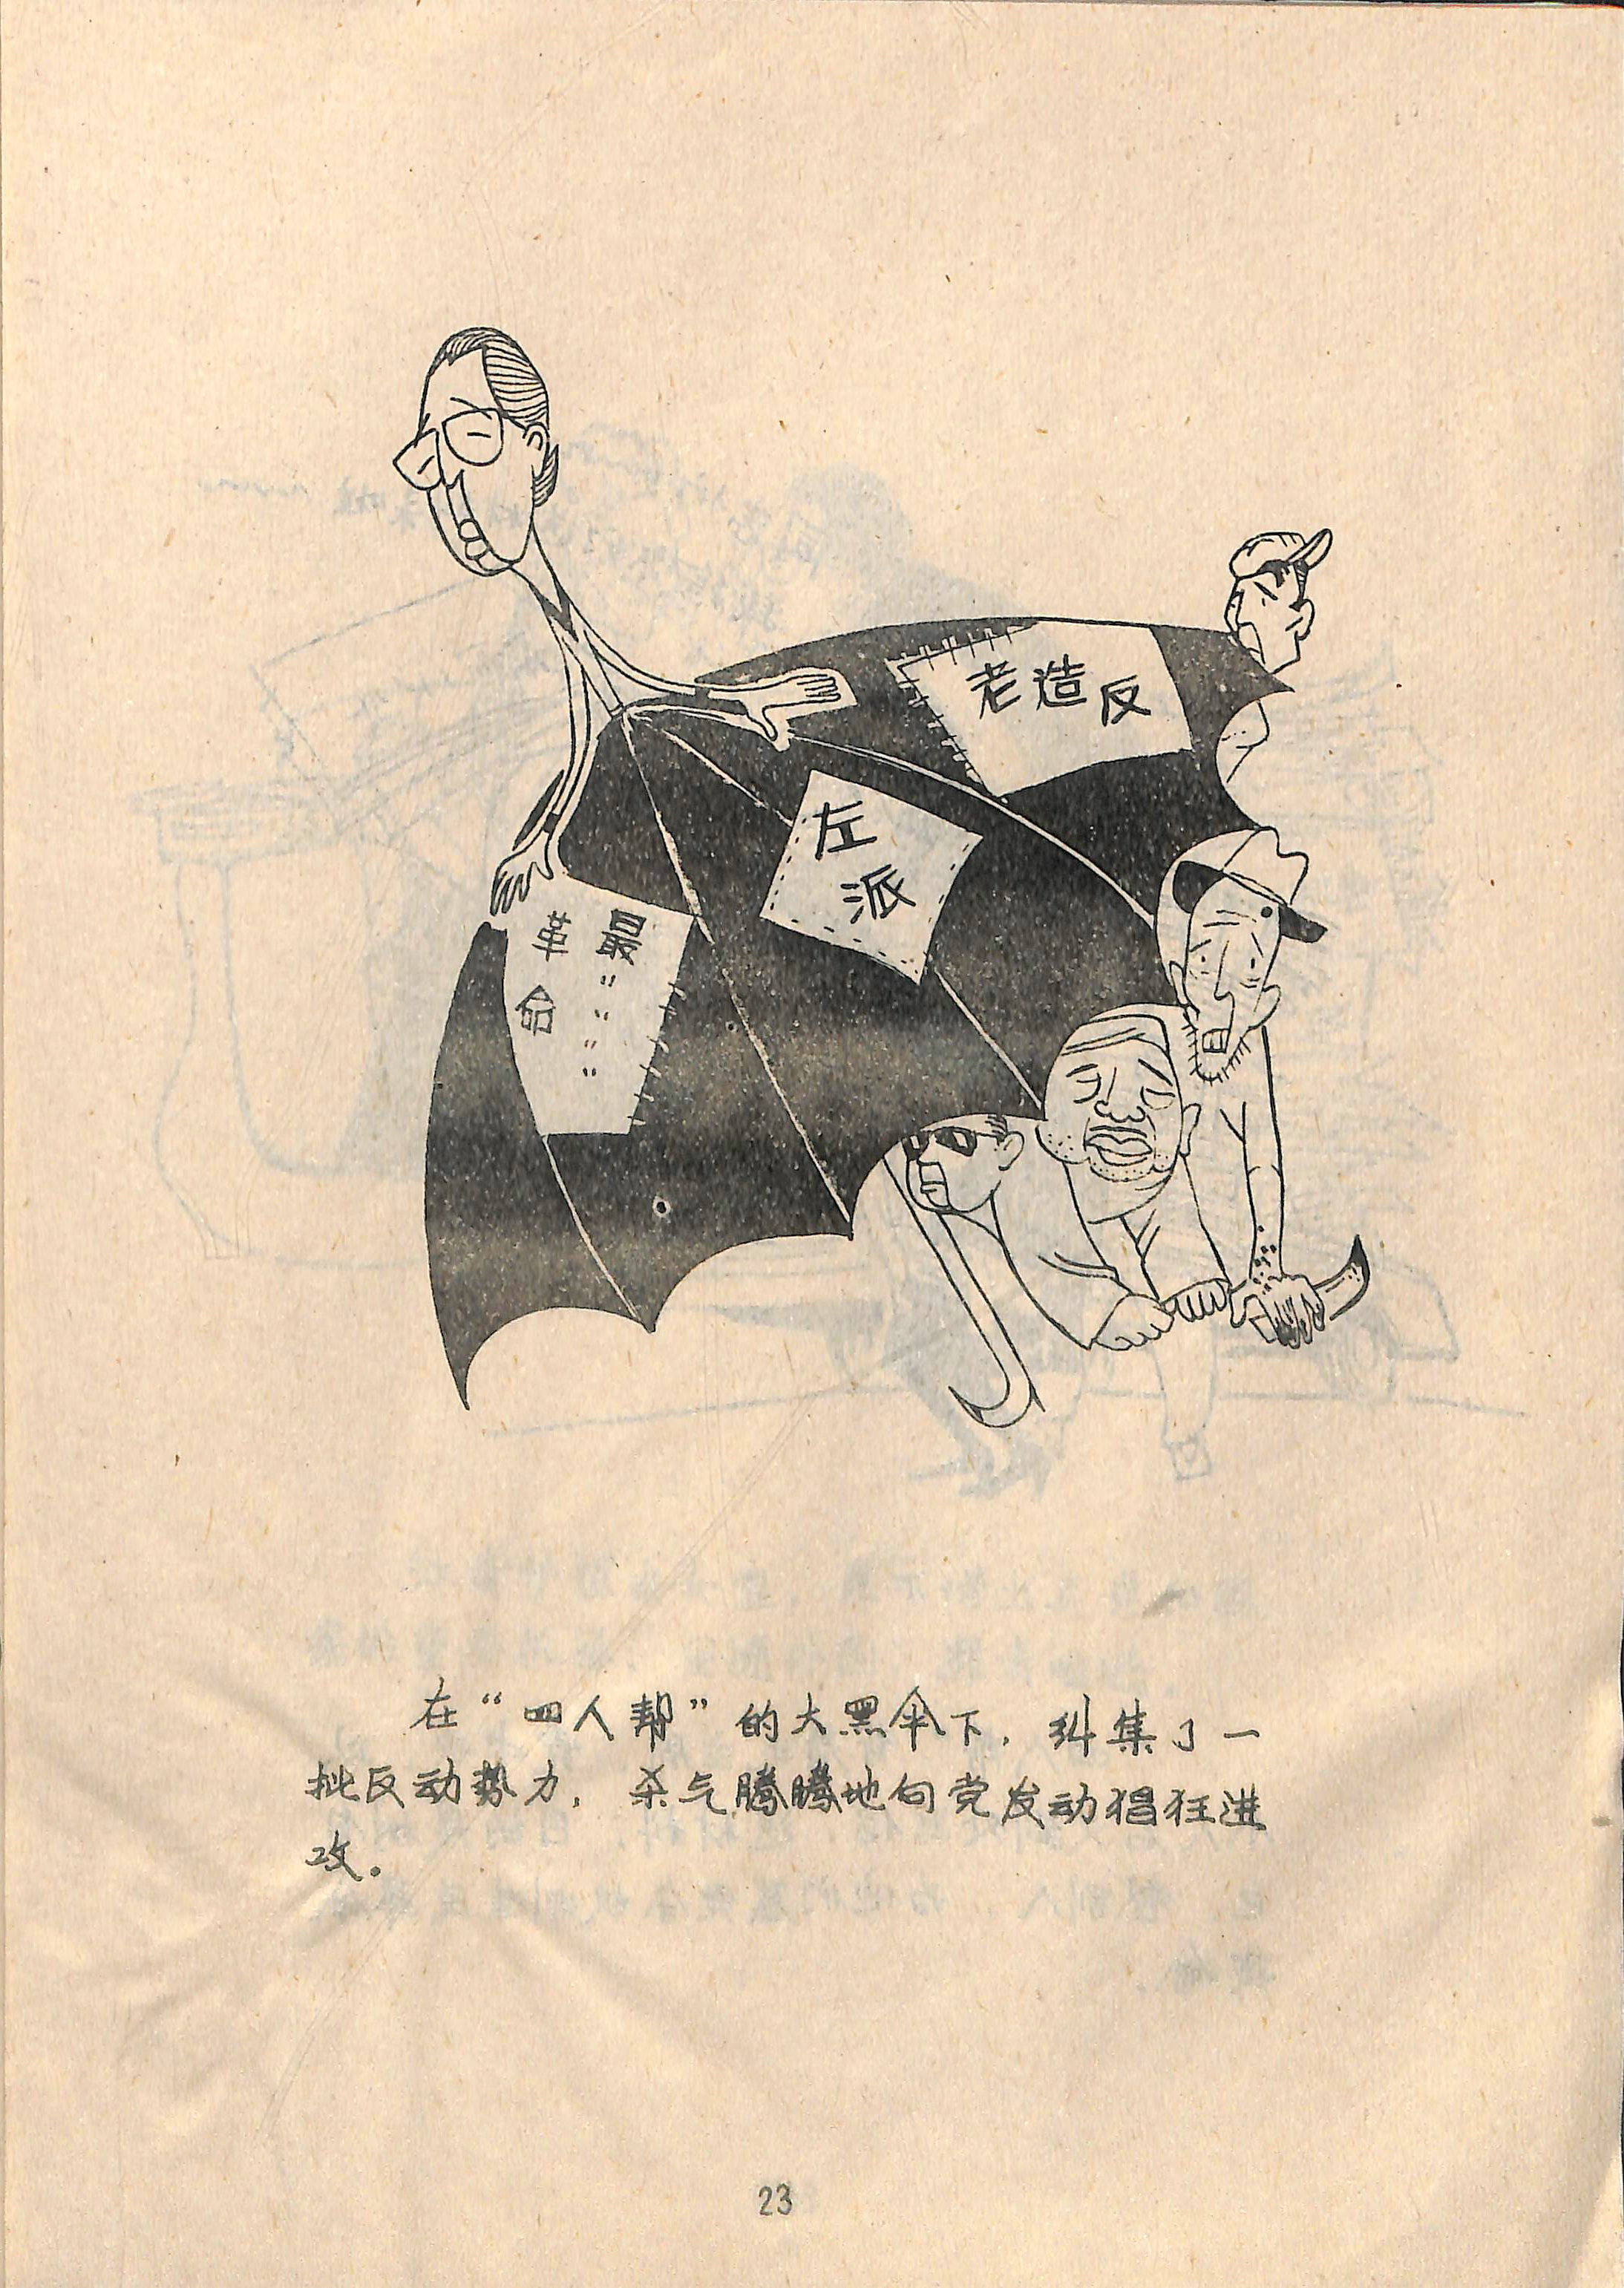 老造反
左
派
最〃〃〃〃
革命
在“四人帮”的大黑伞下，纠集了一
批反动势力，杀气腾腾地向党发动猖狂进
攻。
23